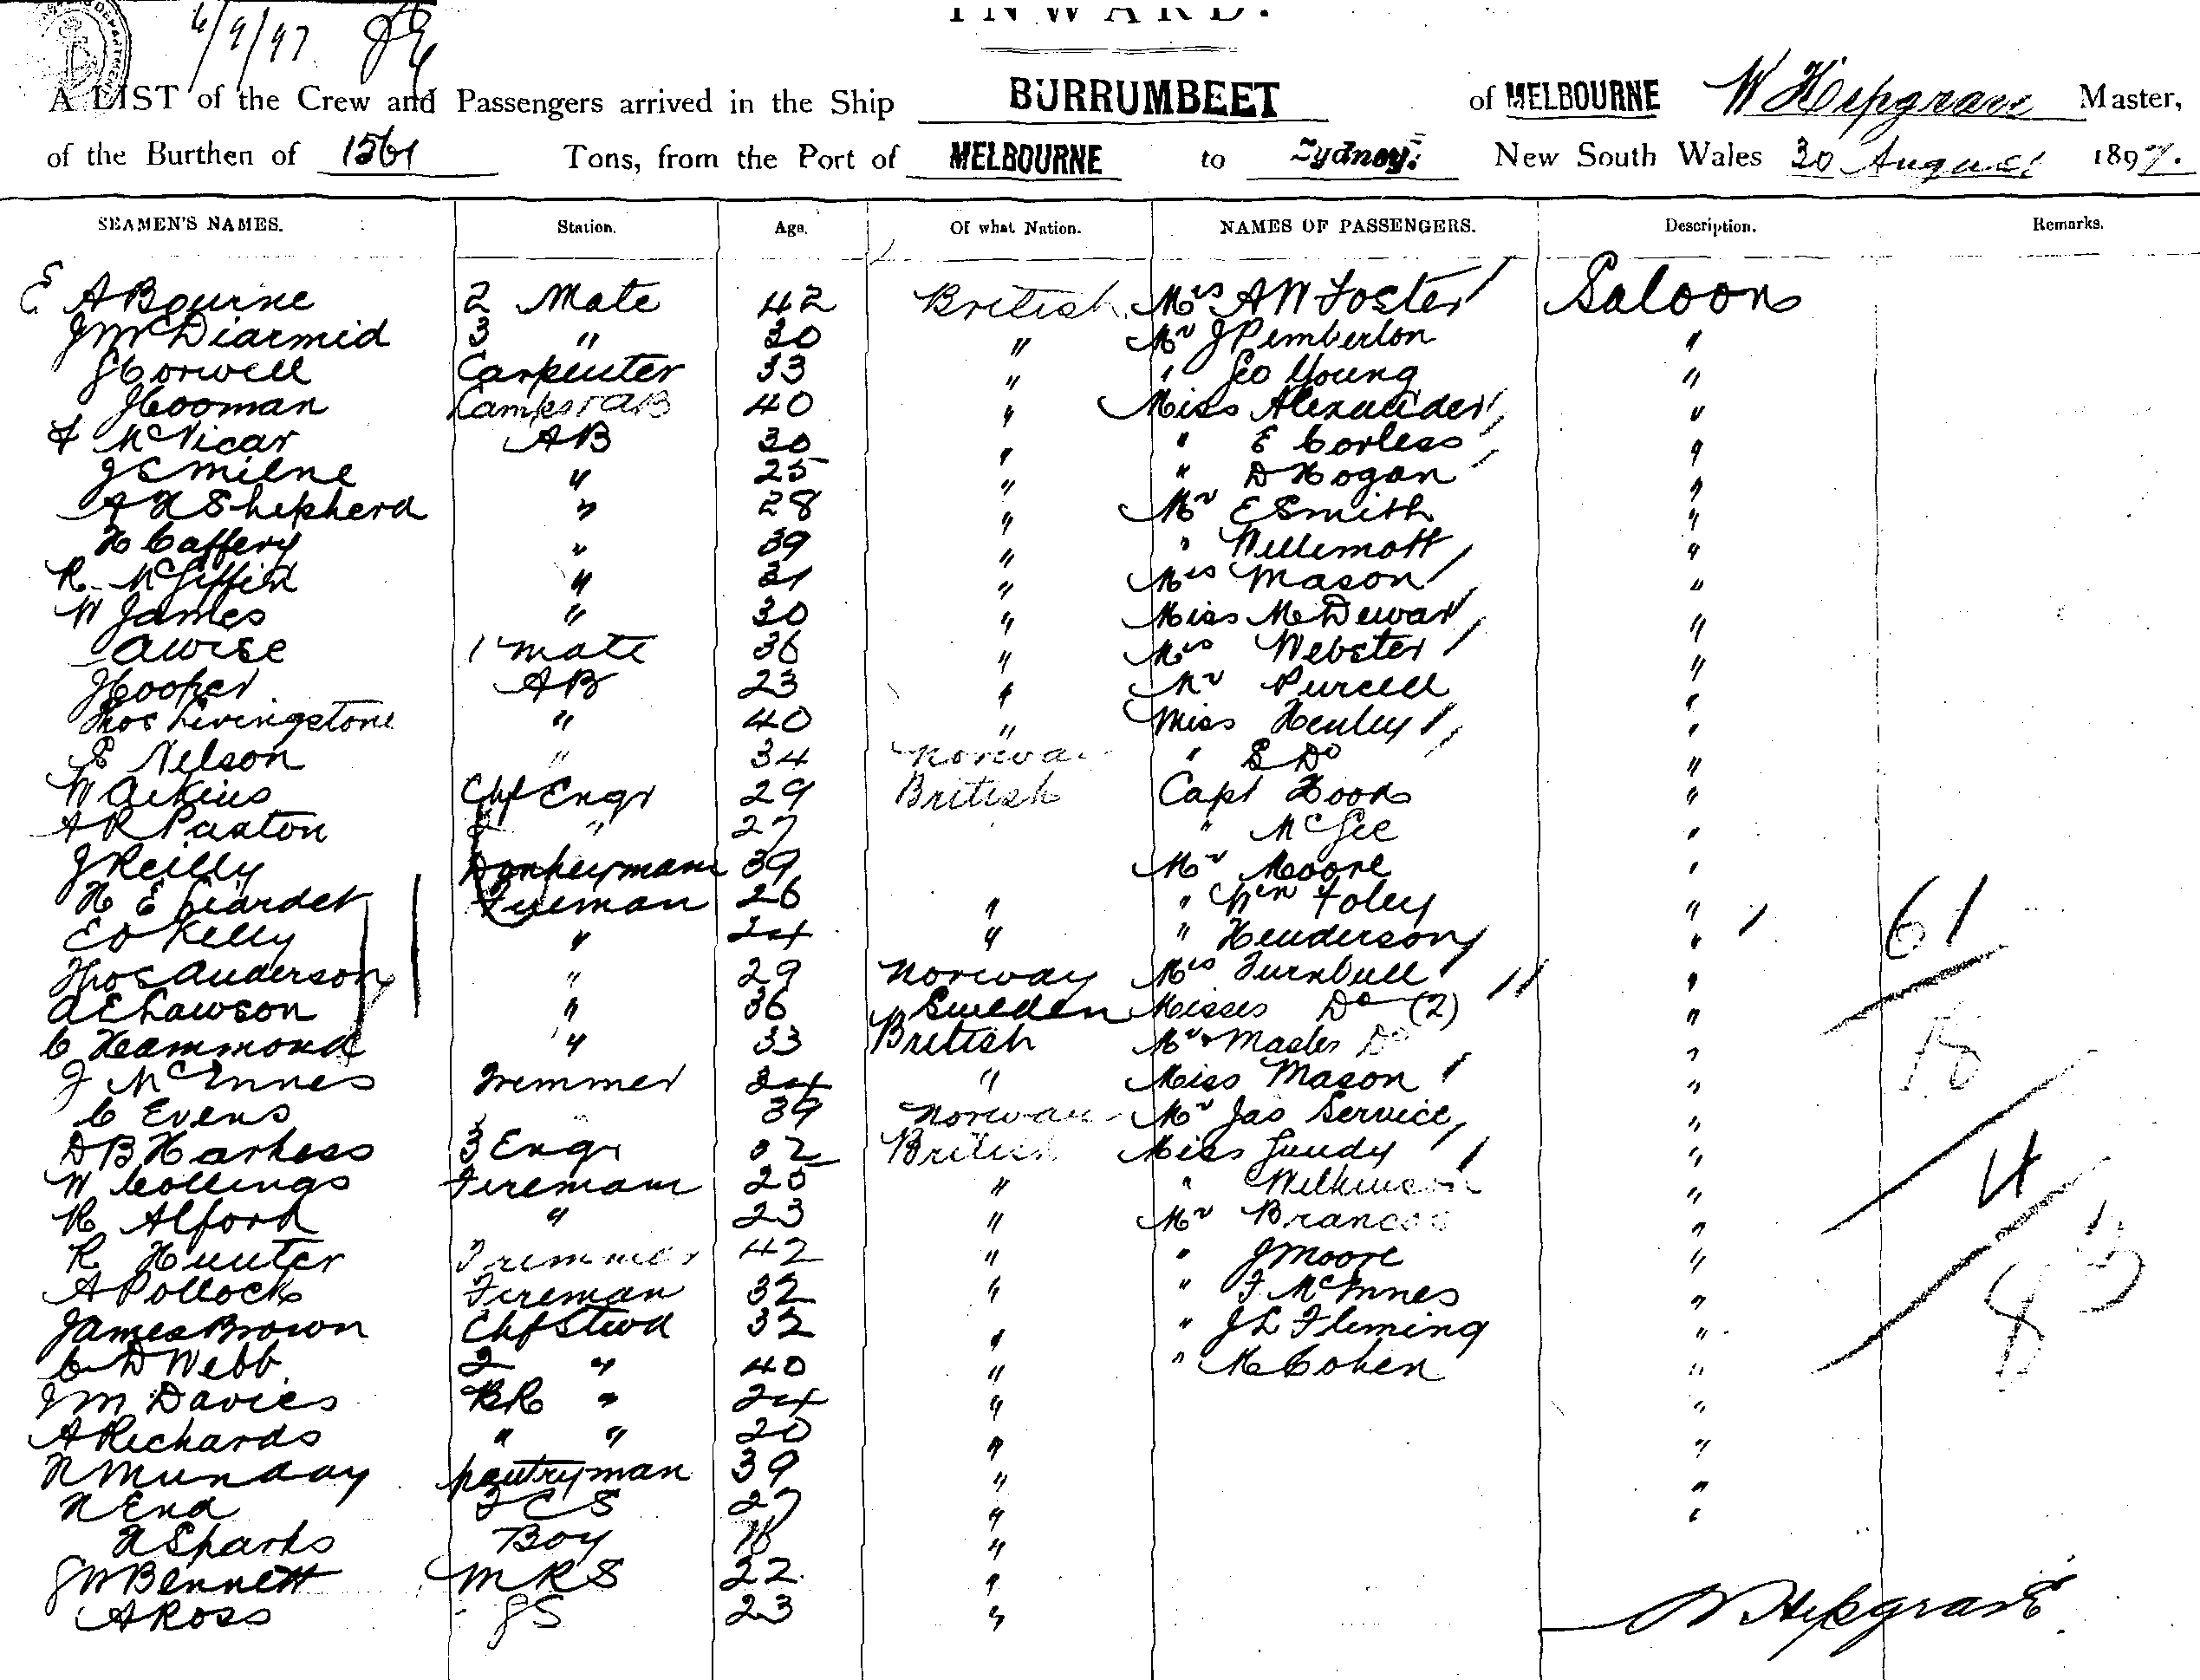 6/9/97
INWARD.
A LIST of the Crew and Passengers arrived in the Ship BURRUMBEET of MELBOURNE W Hipgrave Master,
of the Burthen of 1561 Tons, from the Port of MELBOURNE to Sydney. New South Wales 30 August 1897.
SEAMEN'S NAMES. Station. Age. Of what Nation. NAMES OF PASSENGERS. Description. Remarks.
E A Bourne 2 Mate 42 British Mrs A W Foster Saloon
J McDiarmid 3 " 30 " Mr J Pemberton "
J Corwell Carpenter 33 " " Geo Young "
J Cooman Lamps & AB 40 " Miss Alexander "
F McVicar AB 30 " " E Corless "
J C Milne " 25 " " D Hogan "
A H Shepherd " 28 " Mr E Smith "
H Caffery " 39 " " Willimott "
R McGiffin " 31 " Mrs Mason "
W James " 30 " Miss McDewar "
A Wise 1 mate 36 " Mrs Webster "
J Cooper AB 23 " Mr Purcell "
Thos Livingstone " 40 " Miss Henley "
P Nelson " 34 Norway " E Do "
W Aikins Chf Engr 29 British Capt Hood "
A R Paxton 2 " 27 " McGee "
J Reilly Donkeyman 39 Mr Moore "
H E Liardet Fireman 26 " " Foley "
E O Kelly " 24 " " Henderson " 61
Thos Anderson " 29 Norway Mrs Turnbull "
A E Lawson " 36 Sweden Misses Do (2) "
C Hammond " 33 British Mr & Master Do " 18
J McInnes Trimmer 24 " Miss Mason "
C Evens " 39 Norway Mr Jas Service "
D B Harkess 3 Engr 32 British Miss Gundy " 4
W Collings Fireman 25 " " Wilkinson "
H Alford " 23 " Mr "
R Hunter Trimmer 42 " " J Moore "
A Pollock Fireman 32 " " F McInnes " 83
James Brown Chf Stwd 32 " " J L Fleming "
C D Webb 2 " 40 " " M Cohen "
J M Davies BR " 24 " "
A Richards " " 20 " "
N Munday pantryman 39 " "
N End FCS 27 " "
H Sparks Boy 18 "
J W Bennett MRS 22 "
A Ross JS 23 " W Hipgrave